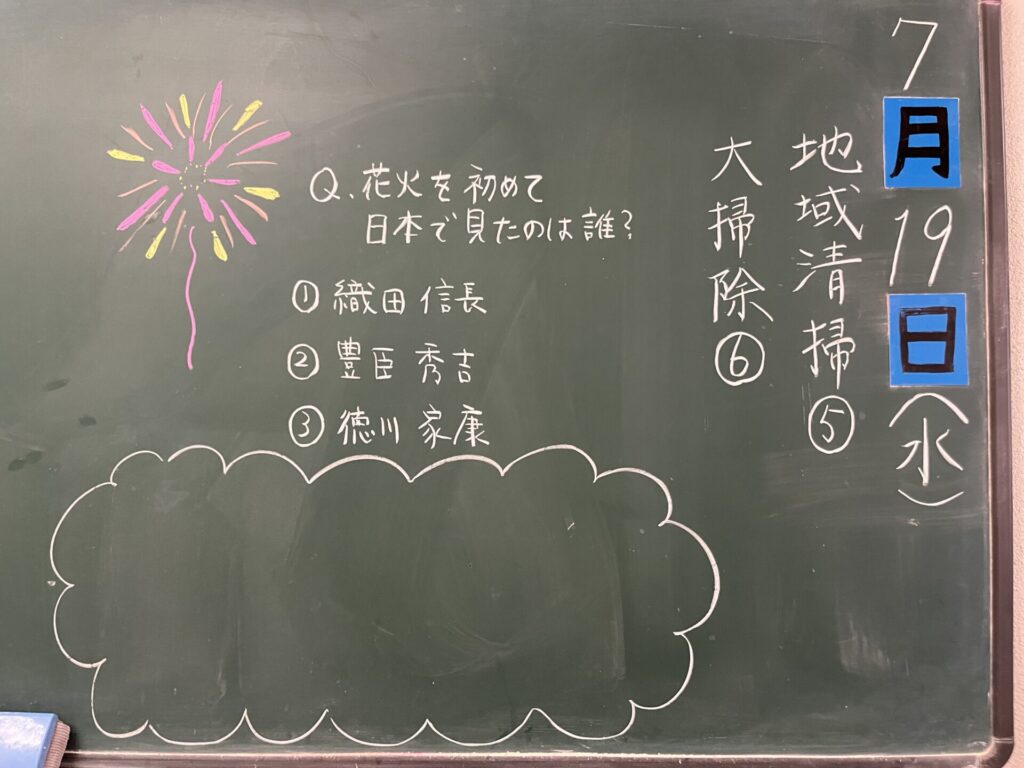 7月19日(水)
地域清掃⑤
大掃除⑥
Q.花火を初めて
日本で見たのは誰?
① 織田 信長
② 豊臣 秀吉
③ 徳川 家康